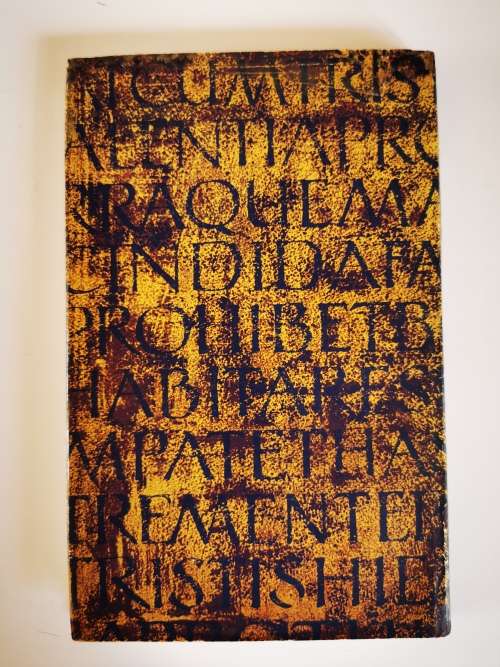 CUMTRIS
ALENTIAPRO
RAQUEMA
CINDIDAFA
PROHIBETB
HABITARES
MPATETHAS
TREMENTEI
TRISTISHIE